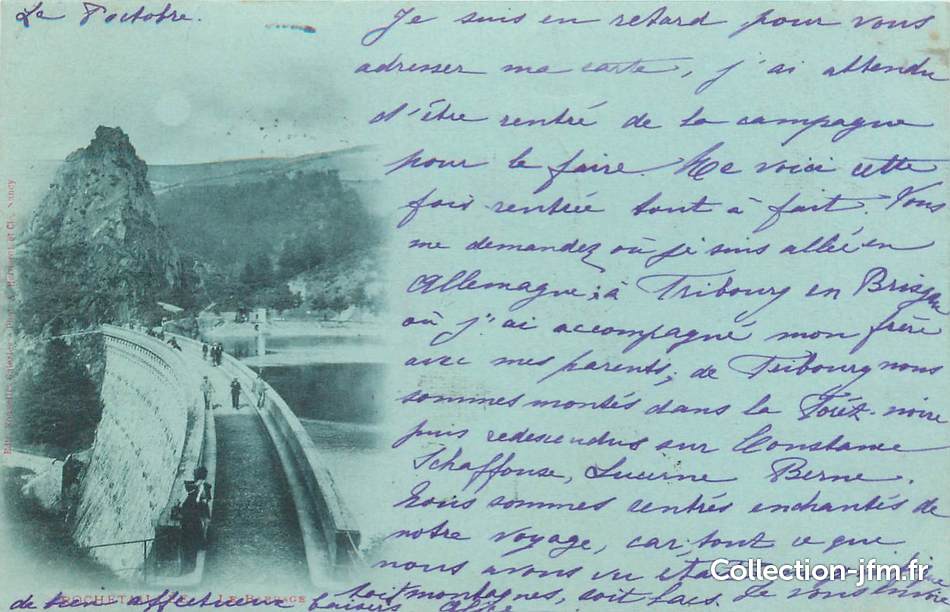 Le 8 octobre.
Je suis en retard pour vous
adresser ma carte, j'ai attendu
d'être rentré de la campagne
pour le faire. Me voici cette
fois rentrée tout à fait. Vous
me demandez où je suis allée en
Allemagne, à Fribourg en Brisgau
où j'ai accompagné mon frère
avec mes parents; de Fribourg nous
sommes montés dans la Forêt-noire
puis redescendus sur Constance
Schaffouse, Lucerne Berne.
Nous sommes rentrés enchantés de
notre voyage, car tout ce que
nous avons vu était
soit montagnes, soit lacs. Je vous envoie
de bien affectueux baisers
ROCHETAILLÉE. LE BARRAGE
Collection-jfm.fr